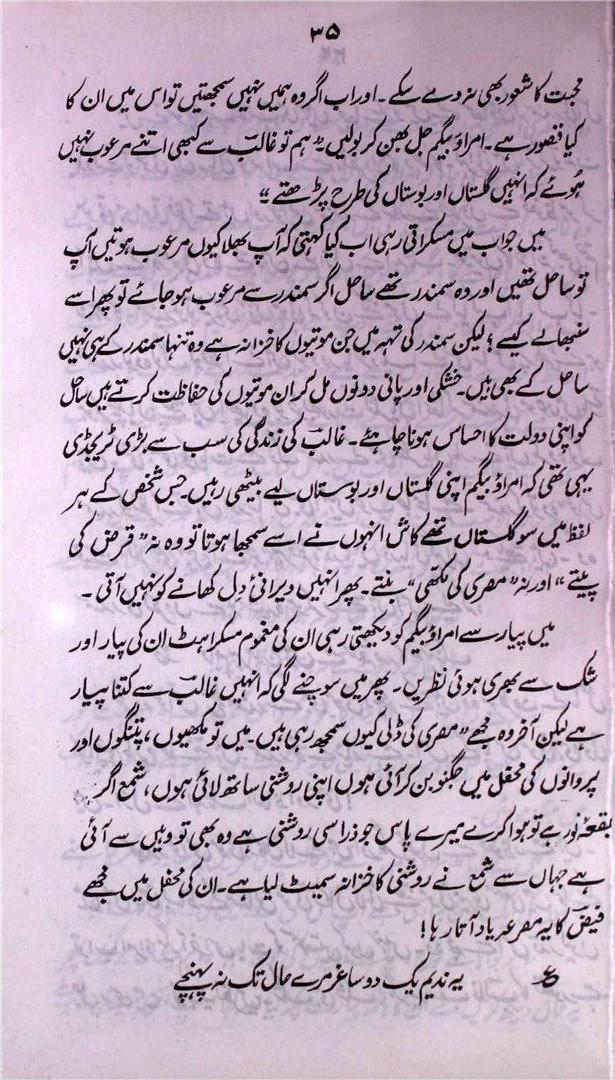 ۳۵
محبت کا شعور بھی نہ دے سکے۔ اور اب اگر وہ ہمیں نہیں سمجھتیں تو اس میں ان کا
کیا قصور ہے۔ امراؤ بیگم جل بھن کر بولیں "ہم تو غالبؔ سے کبھی اتنے مرعوب نہیں
ہوئے کہ انہیں گلستاں اور بوستاں کی طرح پڑھتے"
میں جواب میں مسکراتی رہی اب کیا کہتی کہ آپ بھلا کیوں مرعوب ہوتیں آپ
تو ساحل تھیں اور وہ سمندر تھے ساحل اگر سمندر سے مرعوب ہو جائے تو پھر اسے
سنبھالے کیسے؟ لیکن سمندر کی تہہ میں جن موتیوں کا خزانہ ہے وہ تنہا سمندر کے ہی نہیں
ساحل کے بھی ہیں۔ خشکی اور پانی دونوں مل کر ان موتیوں کی حفاظت کرتے ہیں ساحل
کو اپنی دولت کا احساس ہونا چاہئے۔ غالبؔ کی زندگی کی سب سے بڑی ٹریجڈی
یہی تھی کہ امراؤ بیگم اپنی گلستاں اور بوستاں لیے بیٹھی رہیں۔ جس شخص کے ہر
لفظ میں سو گلستاں تھے کاش انہوں نے اسے سمجھا ہوتا تو وہ نہ "قرض کی
پیتے" اور نہ "مصری کی مکھی" بنتے۔ پھر انہیں ویرانئ دل کھانے کو نہیں آتی۔
میں پیار سے امراؤ بیگم کو دیکھتی رہی ان کی مغموم مسکراہٹ ان کی پیار اور
شک سے بھری ہوئی نظریں۔ پھر میں سوچنے لگی کہ انہیں غالبؔ سے کتنا پیار
ہے لیکن آخر وہ مجھے "مصری کی ڈلی کیوں سمجھ رہی ہیں۔ میں تو مکھیوں، پتنگوں اور
پروانوں کی محفل میں جگنو بن کر آئی ہوں اپنی روشنی ساتھ لائی ہوں، شمع اگر
بقعۂ نور ہے تو ہوا کرے میرے پاس جو ذرا سی روشنی ہے وہ بھی تو وہیں سے آئی
ہے جہاں سے شمع نے روشنی کا خزانہ سمیٹ لیا ہے۔ ان کی محفل میں مجھے
فیضؔ کا یہ مصرعہ یاد آتا رہا!
ع یہ ندیم یک دو ساغر مرے حال تک نہ پہنچے